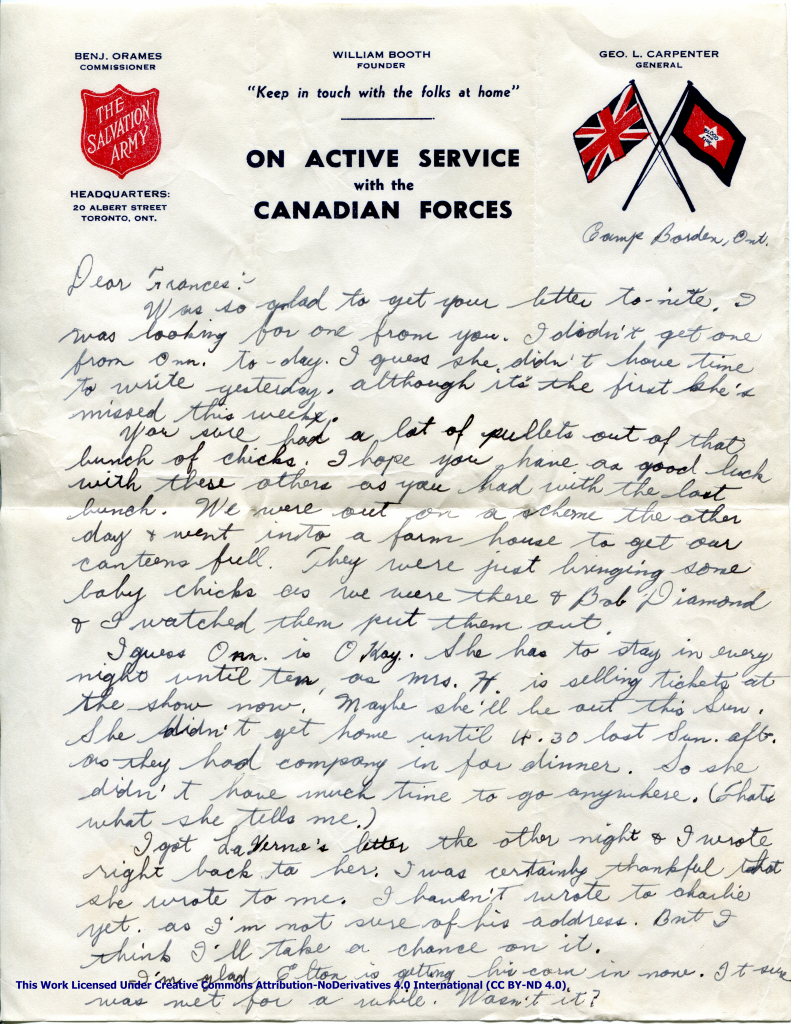 BENJ. ORAMES
COMMISSIONER
THE
SALVATION
ARMY
HEADQUARTERS:
20 ALBERT STREET
TORONTO, ONT.
WILLIAM BOOTH
FOUNDER
"Keep in touch with the folks at home"
ON ACTIVE SERVICE
with the
CANADIAN FORCES
GEO. L. CARPENTER
GENERAL
Camp Borden, Ont.
Dear Frances:-
Was so glad to get your letter to-nite. I
was looking for one from you. I didn't get one
from Onn. to-day. I guess she didn't have time
to write yesterday. although it's the first she's
missed this week.
You sure had a lot of pullets out of that
bunch of chicks. I hope you have as good luck
with these others as you had with the last
bunch. We were out on a scheme the other
day & went into a farm house to get our
canteens full. They were just bringing some
baby chicks as we were there & Bob Diamond
& I watched them put them out.
I guess Onn. is O Kay. She has to stay in every
night until ten, as Mrs. H. is selling tickets at
the show now. Maybe she'll be out this Sun.
She didn't get home until 4.30 last Sun. aft.
as they had company in for dinner. So she
didn't have much time to go anywhere. (Thats
what she tells me.)
I got LaVerne's letter the other night & I wrote
right back to her. I was certainly thankful that
she wrote to me. I haven't wrote to Charlie
yet. as I'm not sure of his address. But I
think I'll take a chance on it.
I'm glad Elton is getting his corn in none. It sure
was wet for a while. Wasn't it?
This Work Licensed Under Creative Commons Attribution-NoDerivatives 4.0 International (CC BY-ND 4.0).